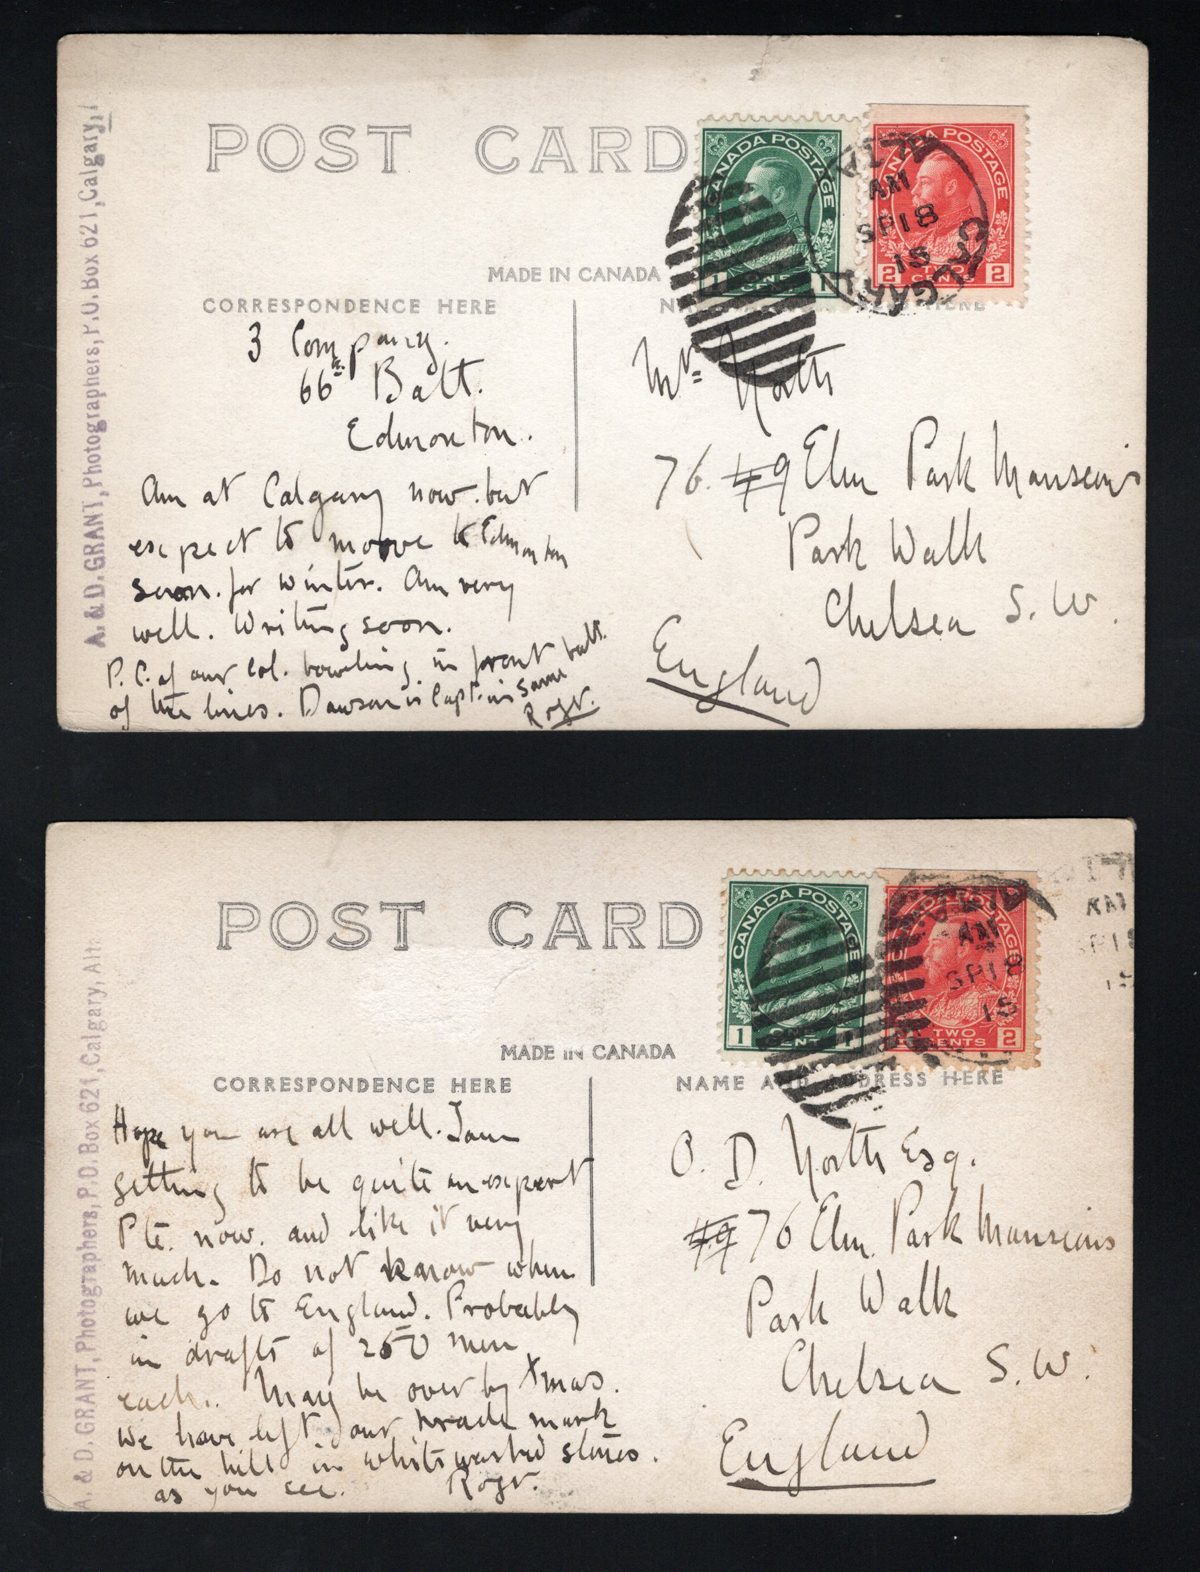 POST CARD
CANADA POSTAGE
1 ONE CENT 1
CANADA POSTAGE
2 TWO CENTS 2
CALGARY ALTA
AM
SP 18
15
MADE IN CANADA
CORRESPONDENCE HERE
A. & D. GRANT, Photographers, P.O. Box 621, Calgary,
3 Company.
66th Batt.
Edmonton.
Am at Calgary now. but
expect to move to Edmonton
soon. for winter. Am very
well. Writing soon.
P.C. of our Col. bowling in front
of the lines. Dawson is Capt. in same batt.
Rogr.
Mrs North
76. #9 Elm Park Mansions
Park Walk
Chelsea S.W.
England
POST CARD
CANADA POSTAGE
1 ONE CENT 1
CANADA POSTAGE
TWO CENTS 2
AM
SP 18
15
MADE IN CANADA
CORRESPONDENCE HERE
NAME AND ADDRESS HERE
A. & D. GRANT, Photographers, P.O. Box 621, Calgary, Alt.
Hope you are all well. I am
getting to be quite an expert
Pte. now. and like it very
much. Do not know when
we go to England. Probably
in drafts of 250 men
each. May be over by Xmas.
We have left our mark
on the hill in whitewashed stones.
as you see. Rogr.
O. D. North Esq.
#9 76 Elm Park Mansions
Park Walk
Chelsea S.W.
England